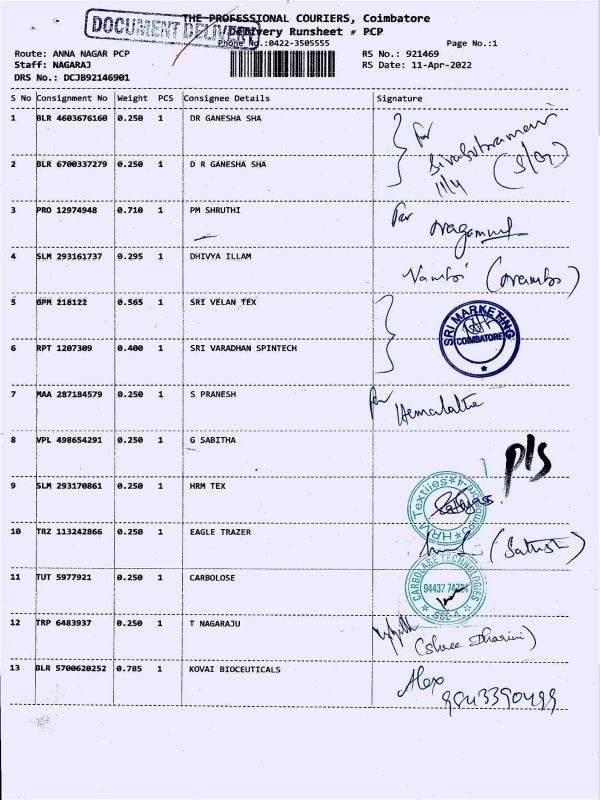 THE PROFESSIONAL COURIERS, Coimbatore
DOCUMENT DELIVERY
Delivery Runsheet - PCP
Phone No.:0422-3505555
Page No.:1
Route: ANNA NAGAR PCP
RS No.: 921469
Staff: NAGARAJ
RS Date: 11-Apr-2022
DRS No.: DCJB92146901
S No Consignment No Weight PCS Consignee Details Signature
1 BLR 4603676160 0.250 1 DR GANESHA SHA
for
11/4
2 BLR 6700337279 0.250 1 D R GANESHA SHA
3 PRO 12974948 0.710 1 PM SHRUTHI
for
4 SLM 293161737 0.295 1 DHIVYA ILLAM
5 GPM 218122 0.565 1 SRI VELAN TEX
SRI MARKETING
COIMBATORE
6 RPT 1207309 0.400 1 SRI VARADHAN SPINTECH
7 MAA 287184579 0.250 1 S PRANESH
for Hemalatha
8 VPL 498654291 0.250 1 G SABITHA
pls
9 SLM 293170861 0.250 1 HRM TEX
HRM Textiles
10 TRZ 113242866 0.250 1 EAGLE TRAZER
(Satish)
11 TUT 5977921 0.250 1 CARBOLOSE
CARBOLASE TECHNOLOGIES
12 TRP 6483937 0.250 1 T NAGARAJU
(Shree Dharini)
13 BLR 5700620252 0.785 1 KOVAI BIOCEUTICALS
Alex
9843390499